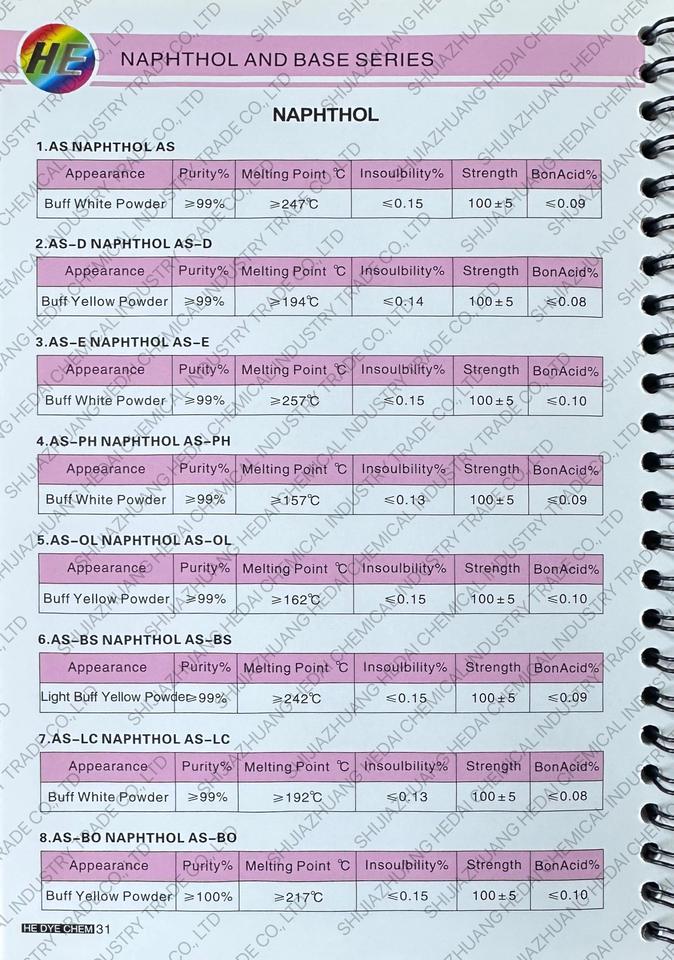 HE
NAPHTHOL AND BASE SERIES
NAPHTHOL
1.AS NAPHTHOL AS
Appearance Purity% Melting Point ℃ Insoulbility% Strength BonAcid%
Buff White Powder ≥99% ≥247℃ ≤0.15 100±5 ≤0.09
2.AS-D NAPHTHOL AS-D
Appearance Purity% Melting Point ℃ Insoulbility% Strength BonAcid%
Buff Yellow Powder ≥99% ≥194℃ ≤0.14 100±5 ≤0.08
3.AS-E NAPHTHOL AS-E
Appearance Purity% Melting Point ℃ Insoulbility% Strength BonAcid%
Buff White Powder ≥99% ≥257℃ ≤0.15 100±5 ≤0.10
4.AS-PH NAPHTHOL AS-PH
Appearance Purity% Melting Point ℃ Insoulbility% Strength BonAcid%
Buff White Powder ≥99% ≥157℃ ≤0.13 100±5 ≤0.09
5.AS-OL NAPHTHOL AS-OL
Appearance Purity% Melting Point ℃ Insoulbility% Strength BonAcid%
Buff Yellow Powder ≥99% ≥162℃ ≤0.15 100±5 ≤0.10
6.AS-BS NAPHTHOL AS-BS
Appearance Purity% Melting Point ℃ Insoulbility% Strength BonAcid%
Light Buff Yellow Powder ≥99% ≥242℃ ≤0.15 100±5 ≤0.09
7.AS-LC NAPHTHOL AS-LC
Appearance Purity% Melting Point ℃ Insoulbility% Strength BonAcid%
Buff White Powder ≥99% ≥192℃ ≤0.13 100±5 ≤0.08
8.AS-BO NAPHTHOL AS-BO
Appearance Purity% Melting Point ℃ Insoulbility% Strength BonAcid%
Buff Yellow Powder ≥100% ≥217℃ ≤0.15 100±5 ≤0.10
HE DYE CHEM 31
SHIJIAZHUANG HEDAI CHEMICAL INDUSTRY TRADE CO., LTD